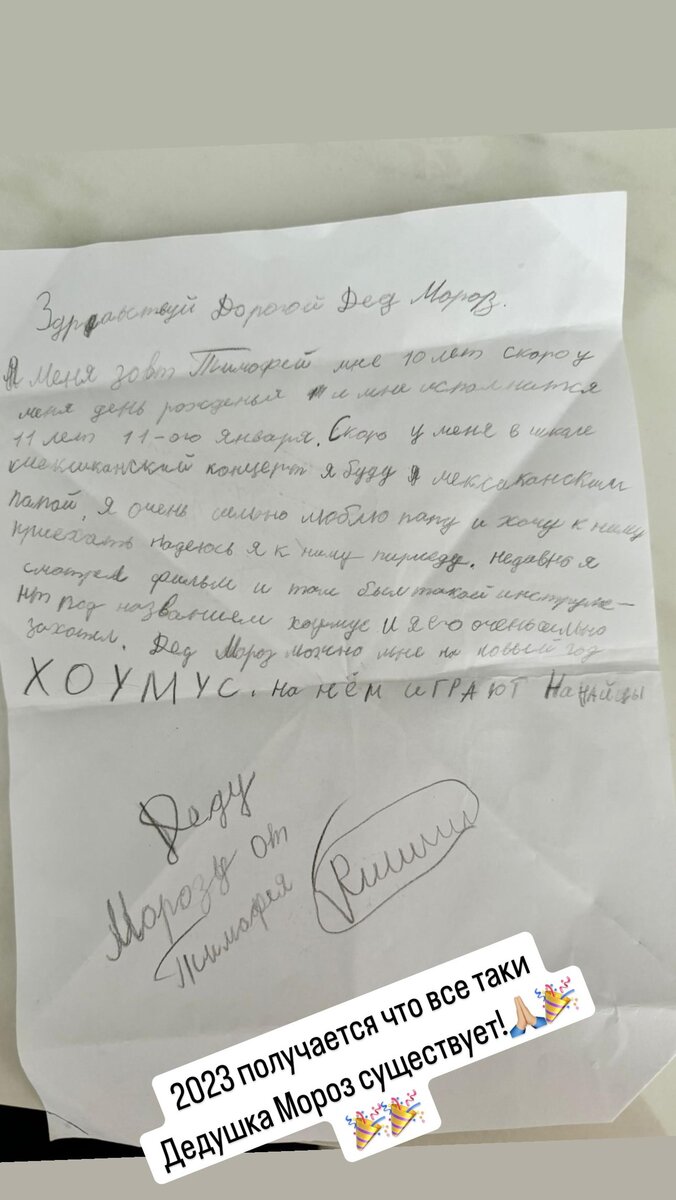 Здравствуй Дорогой Дед Мороз.
Меня зовт Тимофей мне 10 лет скоро у
меня день рожденья и мне исполнится
11 лет 11-ого Января. Скоро у меня в шкале
мексиканский концерт я буду мексиканским
папой. я очень сильно люблю папу и хочу к нему
приехать надеюсь я к нему приеду. недавно я
смотрел фильм и там был такой инструме-
нт под названием хоумус и я его очень сильно
захотел. Дед Мороз можно мне на новый год
ХОУМУС. На нём ИГРАЮТ Нанайцы
Деду
Морозу от
Тимафея
2023 получается что все таки
Дедушка Мороз существует!🙏🏼🎉
🎉🎉